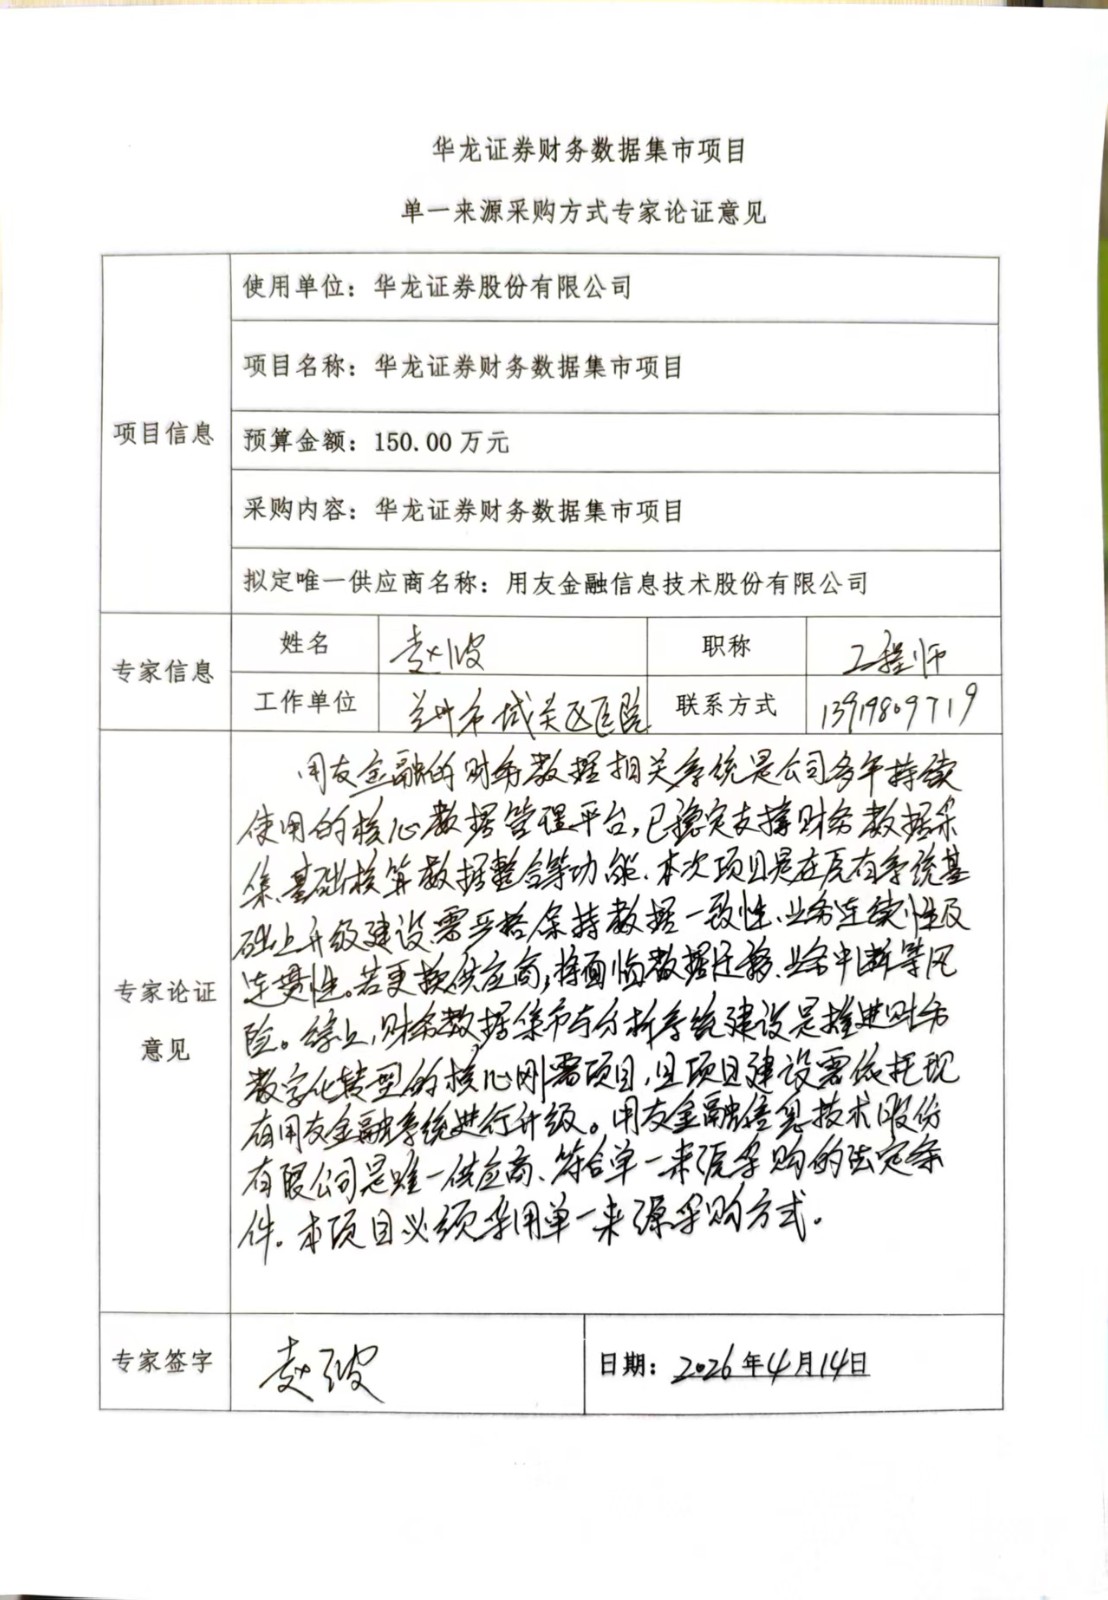 华龙证券财务数据集市项目
单一来源采购方式专家论证意见
项目信息
使用单位：华龙证券股份有限公司
项目名称：华龙证券财务数据集市项目
预算金额：150.00万元
采购内容：华龙证券财务数据集市项目
拟定唯一供应商名称：用友金融信息技术股份有限公司
专家信息
姓名 赵波 职称 工程师
工作单位 兰州市城关区医院 联系方式 13919809719
专家论证意见
用友金融的财务数据相关系统是公司多年持续
使用的核心数据管理平台,已稳定支撑财务数据采
集、基础核算数据整合等功能.本次项目是在原有系统基
础上升级建设,需严格保持数据一致性、业务连续性及
连贯性。若更换供应商,将面临数据迁移、业务中断等风
险。综上,财务数据集市与分析系统建设是推进财务
数字化转型的核心刚需项目,且项目建设需依托现
有用友金融系统进行升级。用友金融信息技术股份
有限公司是唯一供应商、符合单一来源采购的法定条
件.本项目必须采用单一来源采购方式.
专家签字 赵波 日期：2026年4月14日